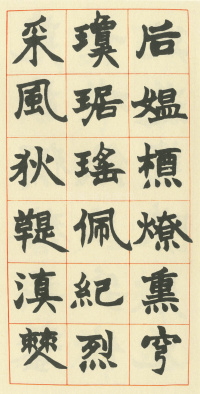 后媼槱燎熏穹
瓊琚瑤佩紀烈
采風狄鞮滇僰